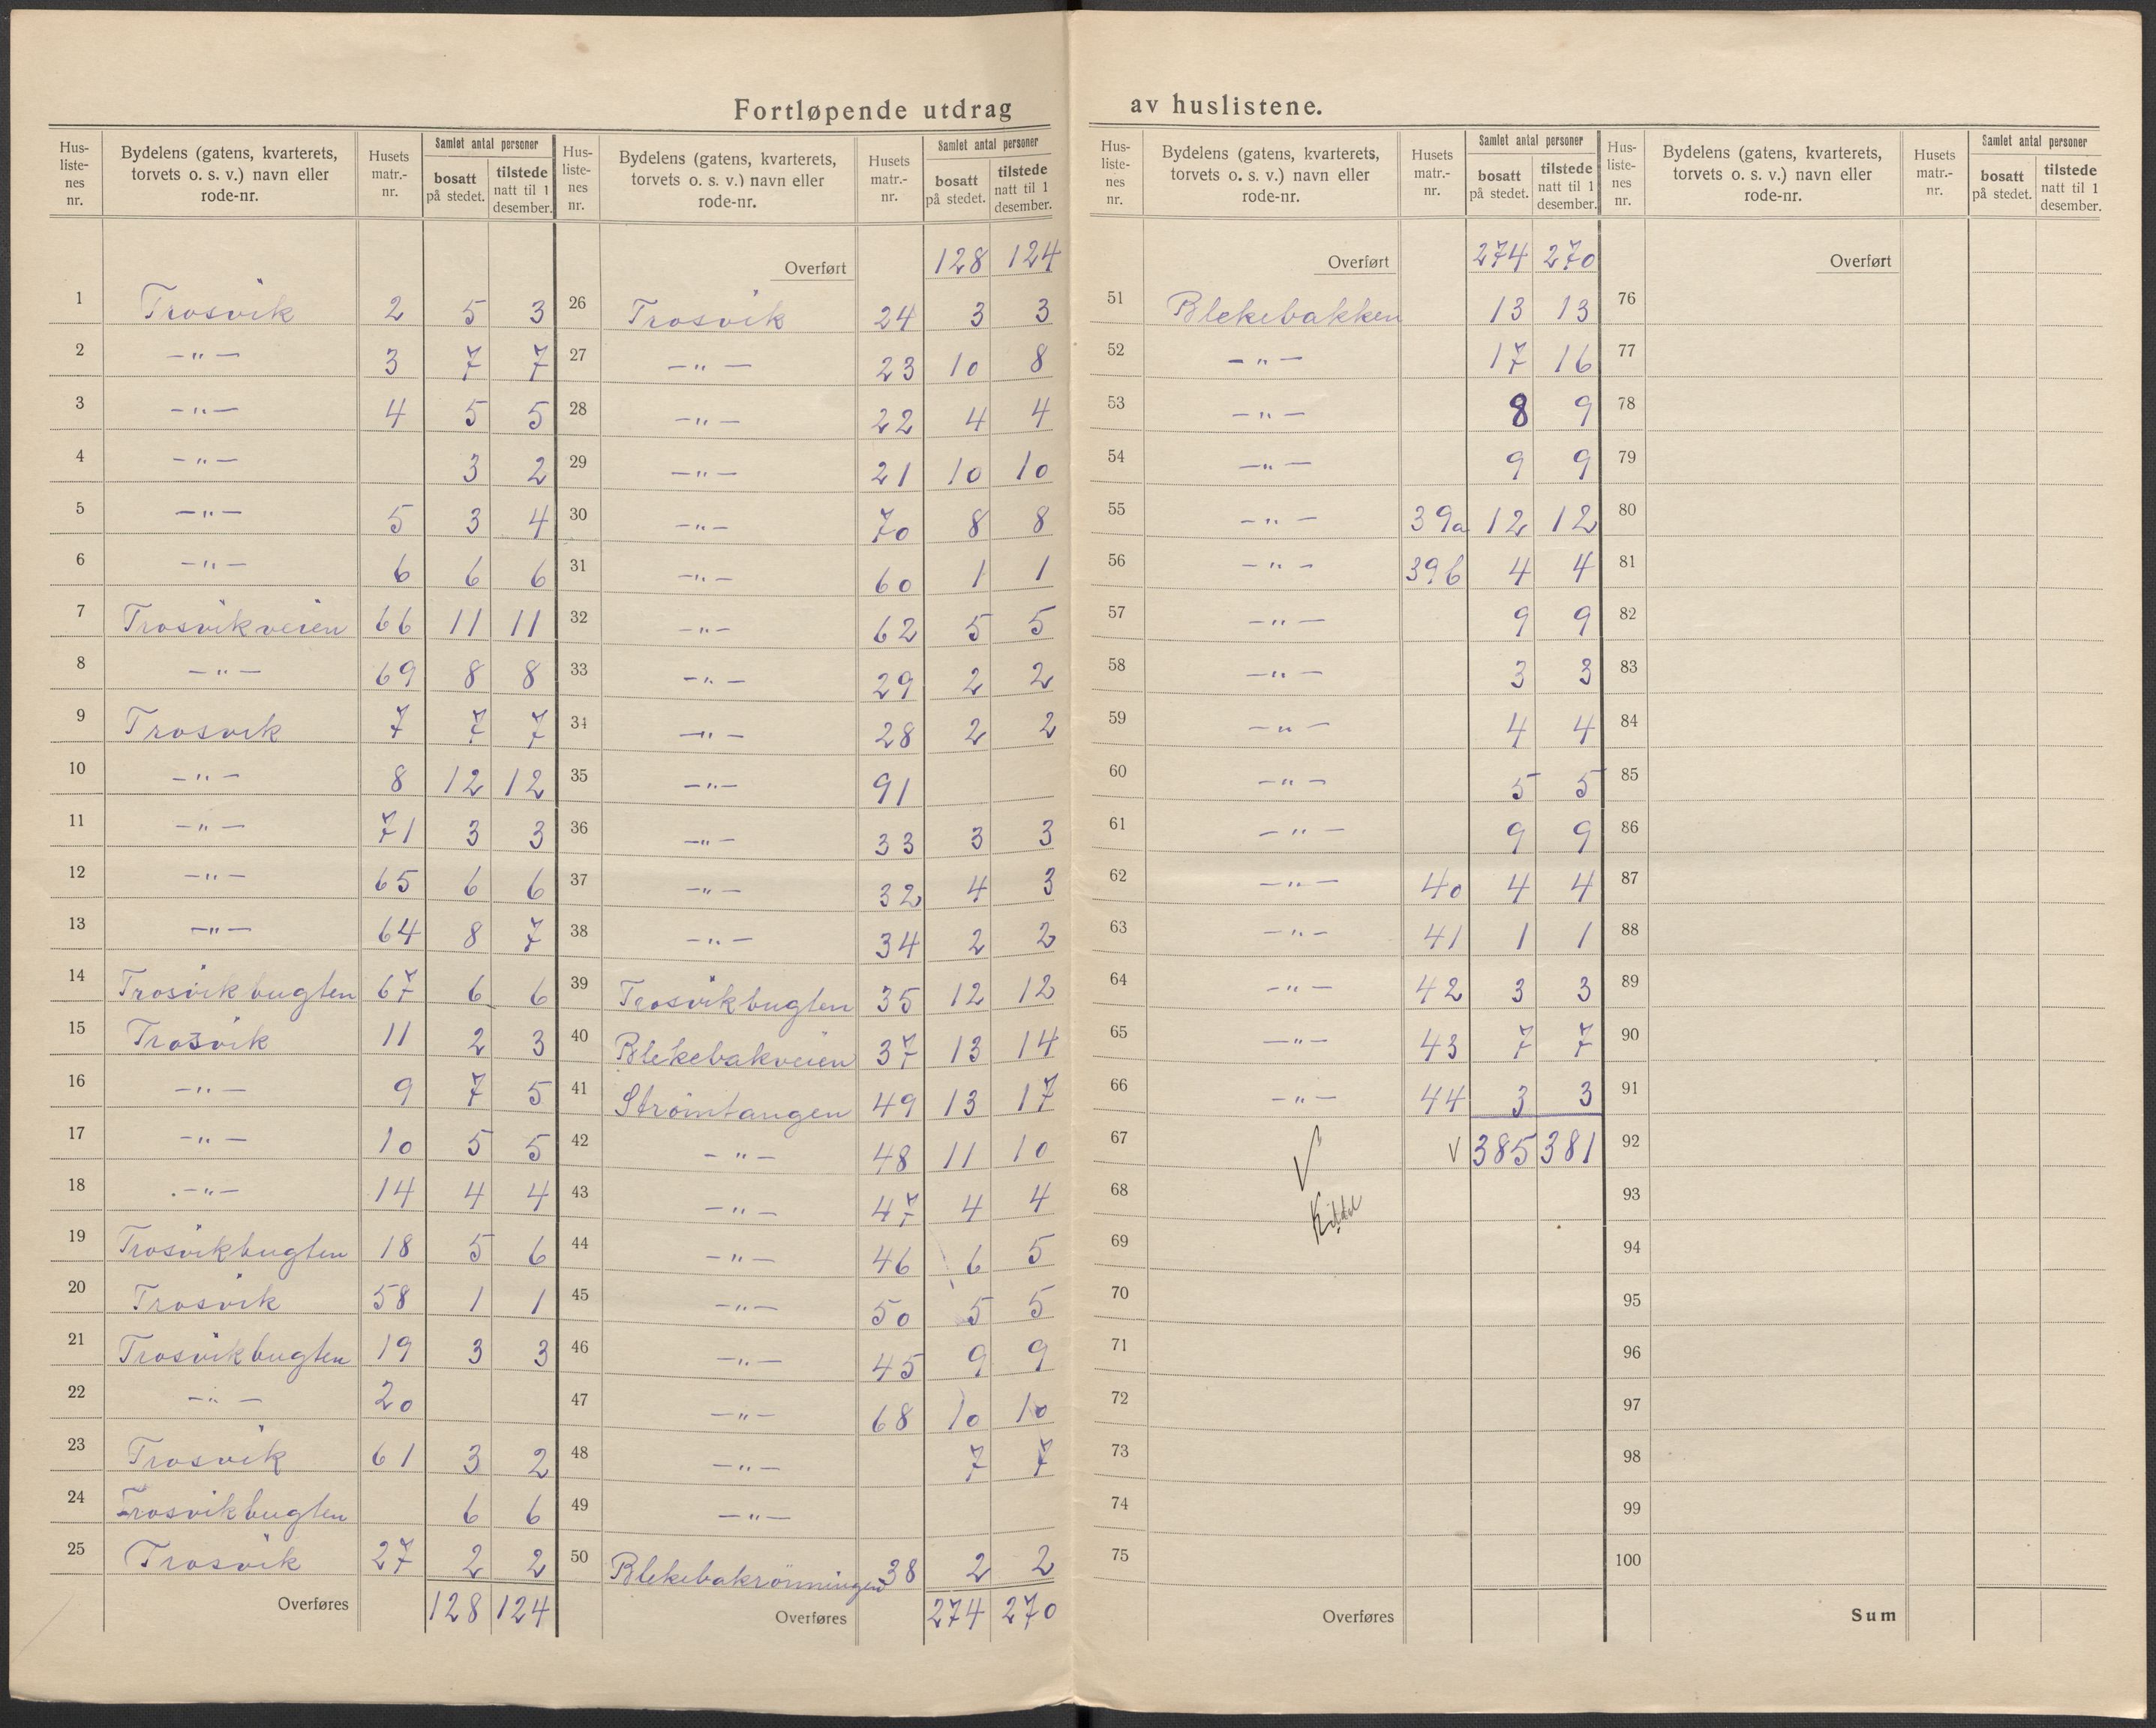 Fortløpende utdrag av huslistene.
Hus-liste-nes nr. | Bydelens (gatens, kvarterets, torvets o. s. v.) navn eller rode-nr. | Husets matr.-nr. | Samlet antal personer bosatt på stedet. | tilstede natt til 1 desember.
1 Trosvik 2 5 3
2 —"— 3 7 7
3 —"— 4 5 5
4 —"— 3 2
5 —"— 5 3 4
6 —"— 6 6 6
7 Trosvikveien 66 11 11
8 —"— 69 8 8
9 Trosvik 7 7 7
10 —"— 8 12 12
11 —"— 71 3 3
12 —"— 65 6 6
13 —"— 64 8 7
14 Trosvikbugten 67 6 6
15 Trosvik 11 2 3
16 —"— 9 7 5
17 —"— 10 5 5
18 —"— 14 4 4
19 Trosvikbugten 18 5 6
20 Trosvik 58 1 1
21 Trosvikbugten 19 3 3
22 —"— 20
23 Trosvik 61 3 2
24 Trosvikbugten 6 6
25 Trosvik 27 2 2
Overføres 128 124
Hus-liste-nes nr. | Bydelens (gatens, kvarterets, torvets o. s. v.) navn eller rode-nr. | Husets matr.-nr. | Samlet antal personer bosatt på stedet. | tilstede natt til 1 desember.
Overført 128 124
26 Trosvik 24 3 3
27 —"— 23 10 8
28 —"— 22 4 4
29 —"— 21 10 10
30 —"— 70 8 8
31 —"— 60 1 1
32 —"— 62 5 5
33 —"— 29 2 2
34 —"— 28 2 2
35 —"— 91
36 —"— 33 3 3
37 —"— 32 4 3
38 —"— 34 2 2
39 Trosvikbugten 35 12 12
40 Blekebakveien 37 13 14
41 Strömtangen 49 13 17
42 —"— 48 11 10
43 —"— 47 4 4
44 —"— 46 6 5
45 —"— 50 5 5
46 —"— 45 9 9
47 —"— 68 10 10
48 —"— 7 7
49 —"—
50 Blekebakrönningen 38 2 2
Overføres 274 270
Hus-liste-nes nr. | Bydelens (gatens, kvarterets, torvets o. s. v.) navn eller rode-nr. | Husets matr.-nr. | Samlet antal personer bosatt på stedet. | tilstede natt til 1 desember.
Overført 274 270
51 Blekebakken 13 13
52 —"— 17 16
53 —"— 8 9
54 —"— 9 9
55 —"— 39a 12 12
56 —"— 39b 4 4
57 —"— 9 9
58 —"— 3 3
59 —"— 4 4
60 —"— 5 5
61 —"— 9 9
62 —"— 40 4 4
63 —"— 41 1 1
64 —"— 42 3 3
65 —"— 43 7 7
66 —"— 44 3 3
67 √ √ 385 381
68
69
70
71
72
73
74
75
Overføres
Hus-liste-nes nr. | Bydelens (gatens, kvarterets, torvets o. s. v.) navn eller rode-nr. | Husets matr.-nr. | Samlet antal personer bosatt på stedet. | tilstede natt til 1 desember.
Overført
76
77
78
79
80
81
82
83
84
85
86
87
88
89
90
91
92
93
94
95
96
97
98
99
100
Sum